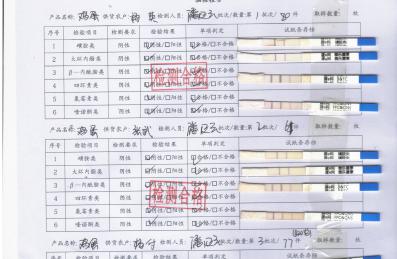 产品名称: 鸡蛋 供货农户 检测人员: 批次/数量:第1批次/30件 取样数量: 枚
序号 检验项目 检测要求 检验结果 单项判定 试纸条存档
1 磺胺类 阴性 ☑阴性/□阳性 ☑合格/□不合格
2 大环内酯类 阴性 ☑阴性/□阳性 ☑合格/□不合格
3 β-内酰胺类 阴性 ☑阴性/□阳性 ☑合格/□不合格
4 四环素类 阴性 ☑阴性/□阳性 ☑合格/□不合格
5 氨霉素类 阴性 ☑阴性/□阳性 ☑合格/□不合格
6 喹诺酮类 阴性 ☑阴性/□阳性 ☑合格/□不合格
检测合格
产品名称: 鸡蛋 供货农户 检测人员: 批次/数量:第2批次/ 件 取样数量: 枚
序号 检验项目 检测要求 检验结果 单项判定 试纸条存档
1 磺胺类 阴性 ☑阴性/□阳性 ☑合格/□不合格
2 大环内酯类 阴性 ☑阴性/□阳性 ☑合格/□不合格
3 β-内酰胺类 阴性 ☑阴性/□阳性 ☑合格/□不合格
4 四环素类 阴性 ☑阴性/□阳性 ☑合格/□不合格
5 氨霉素类 阴性 ☑阴性/□阳性 ☑合格/□不合格
6 喹诺酮类 阴性 ☑阴性/□阳性 ☑合格/□不合格
检测合格
产品名称: 鸡蛋 供货农户 检测人员: 批次/数量:第3批次/77件 取样数量: 枚